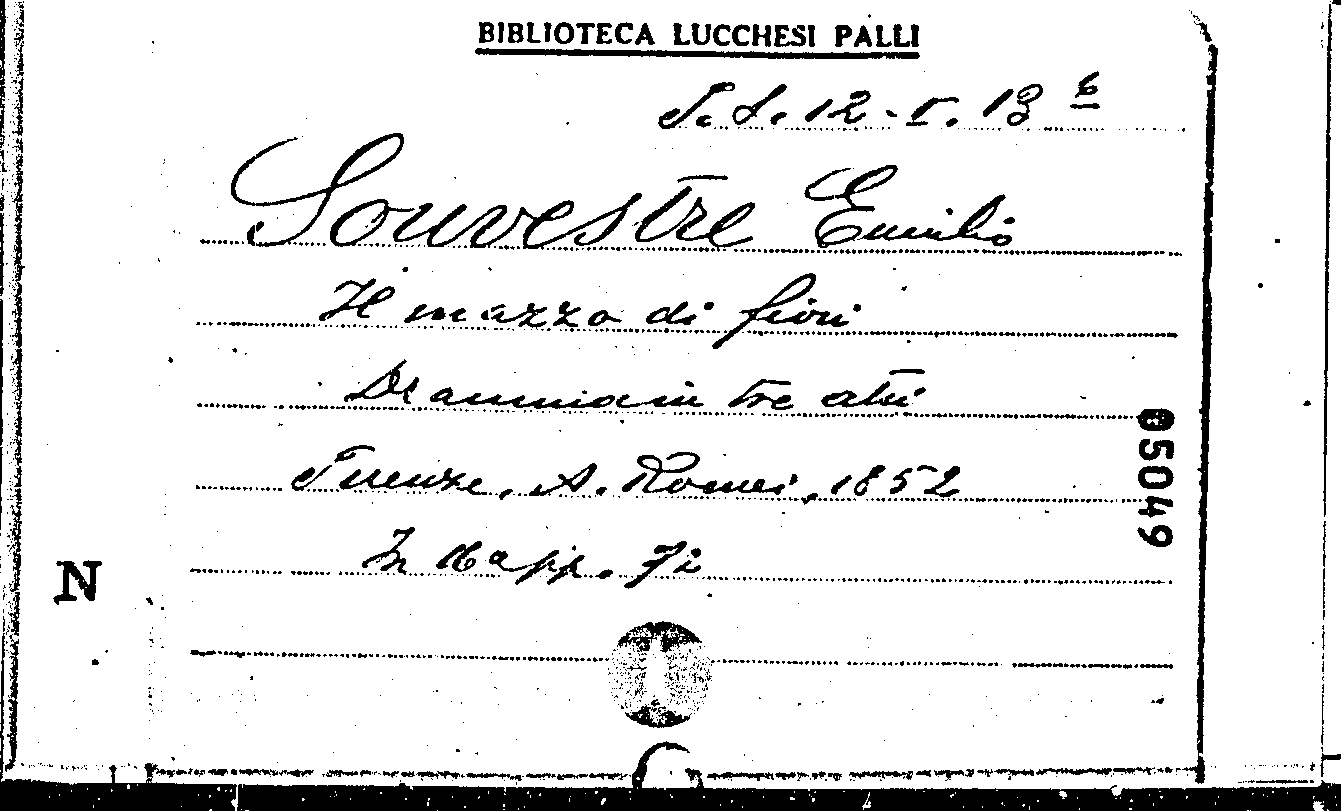 BIBLIOTECA LUCCHESI PALLI
T. S. 12-V. 13 6
Souvestre Emilio
Il mazzo di fiori
Dramma in tre atti
Firenze, A. Romei, 1852
In 16° pp. 72
05049
N